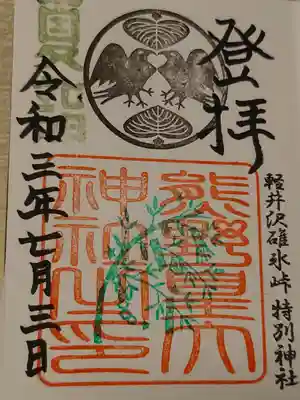 登拝
軽井沢碓氷峠 特別神社
熊野皇大
神社之印
令和三年七月三日
夏詣